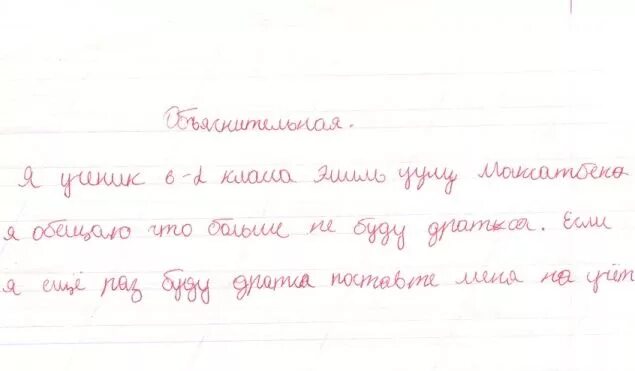 Объяснительная.
Я ученик 6-d класса Эшиль уулу Максатбек
я обещаю что больше не буду драткса. Если
я ещё раз буду дратка поставте меня на учёт